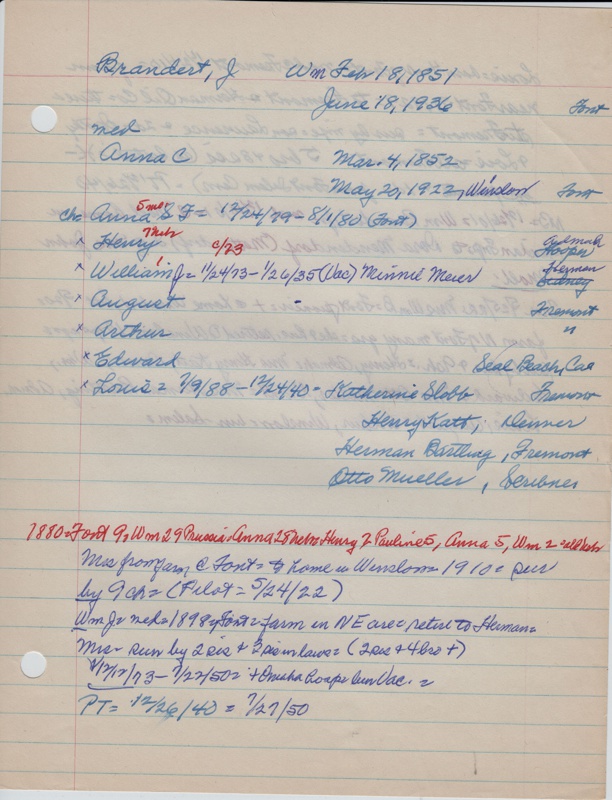 Brandert, J Wm Feb 18, 1851
June 18, 1936 Font
med
Anna C Mar. 4, 1852
May 20, 1922, Winslow Font
5 mo
Ch Anna S F = 12/24/79 - 8/1/80 (Font)
x Henry c/23 Hooper
x William J = 11/24/73 - 1/26/35 (Vac) Minnie Meier Herman
Sidney
x August Fremont
x Arthur "
x Edward Seal Beach, Cal
x Louis = 7/9/88 - 12/24/40 = Katherine Slobb Fremont
Henry Katt, Denver
Herman Bartling, Fremont
Otto Mueller, Scribner
1880 = Font 9, Wm 29 Prussia, Anna 28 Nebr Henry 7 Pauline 5, Anna 5, Wm 2 = all Nebr
Mrs from farm C Font = to home in Winslow = 1910 = sur
by 9 ch = (Pilot = 5/24/22)
Wm J = med = 1898, Font = farm in NE area = retire to Herman =
Mrs = sur by 2 sis + 3 sis in laws = (2 sis + 4 bro +)
12/17/73 - 7/22/50 = + Omaha hosp = bur Vac. =
PT = 12/26/40 = 7/27/50